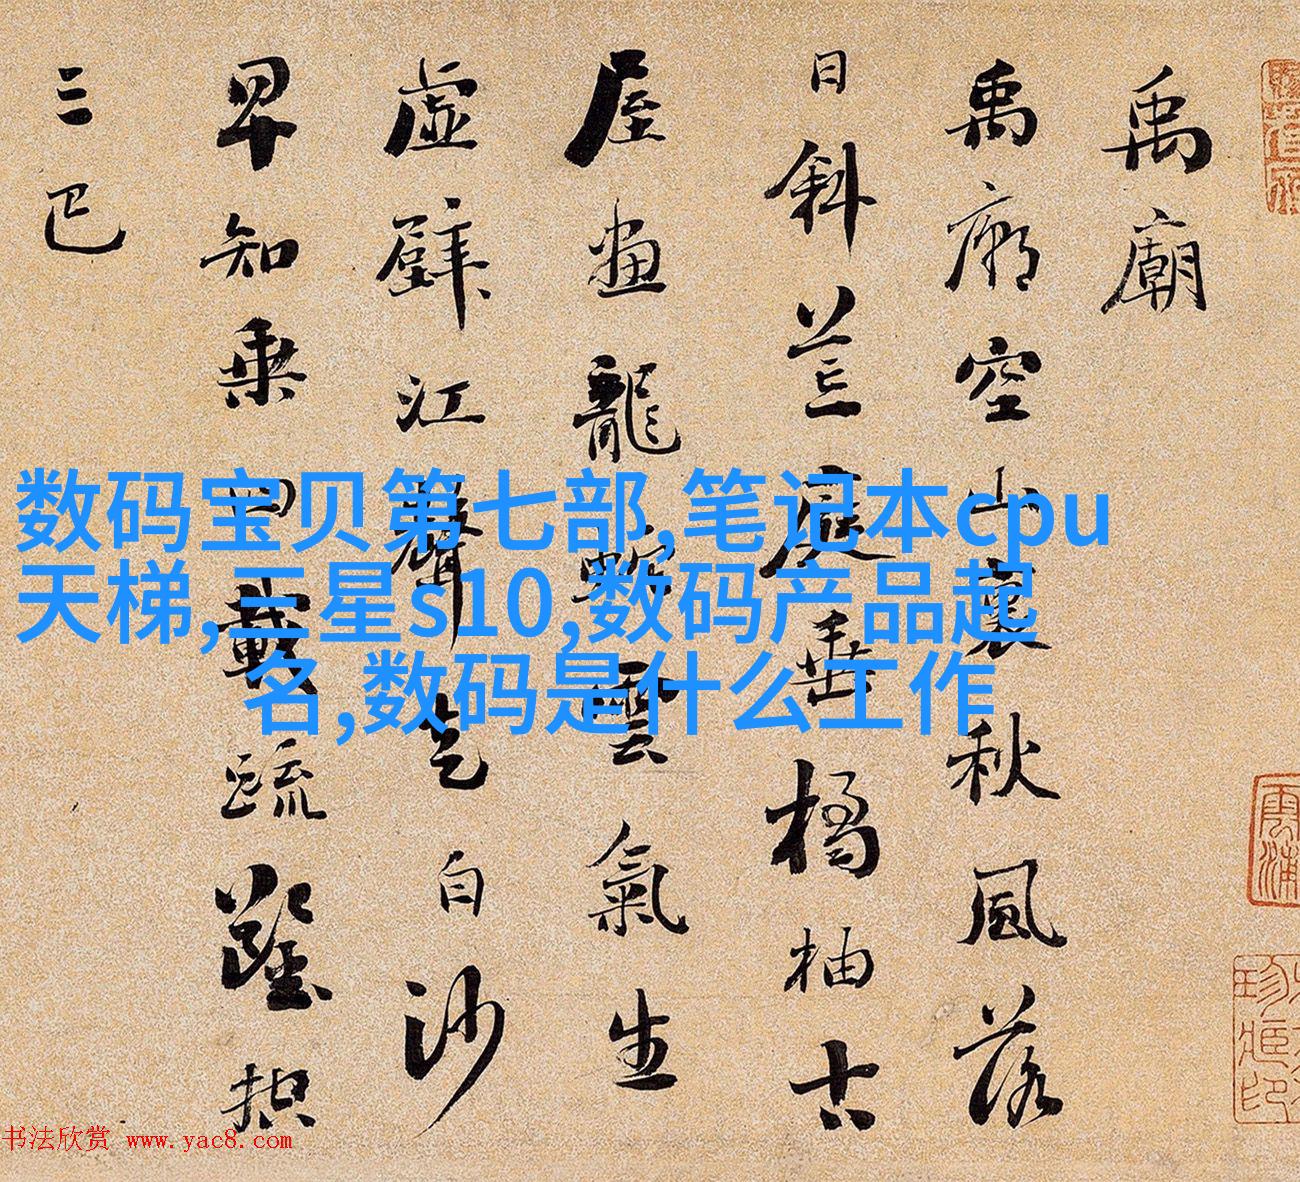 禹廟
禹廟空山裏秋風落
日斜荒庭垂橘柚古
屋畫龍蛇雲氣生
虛壁江聲走白沙
早知乘四載疏鑿控
三巴
数码宝贝第七部,笔记本cpu
天梯,三星s10,数码产品起
名,数码是什么工作
书法欣赏 www.yac8.com